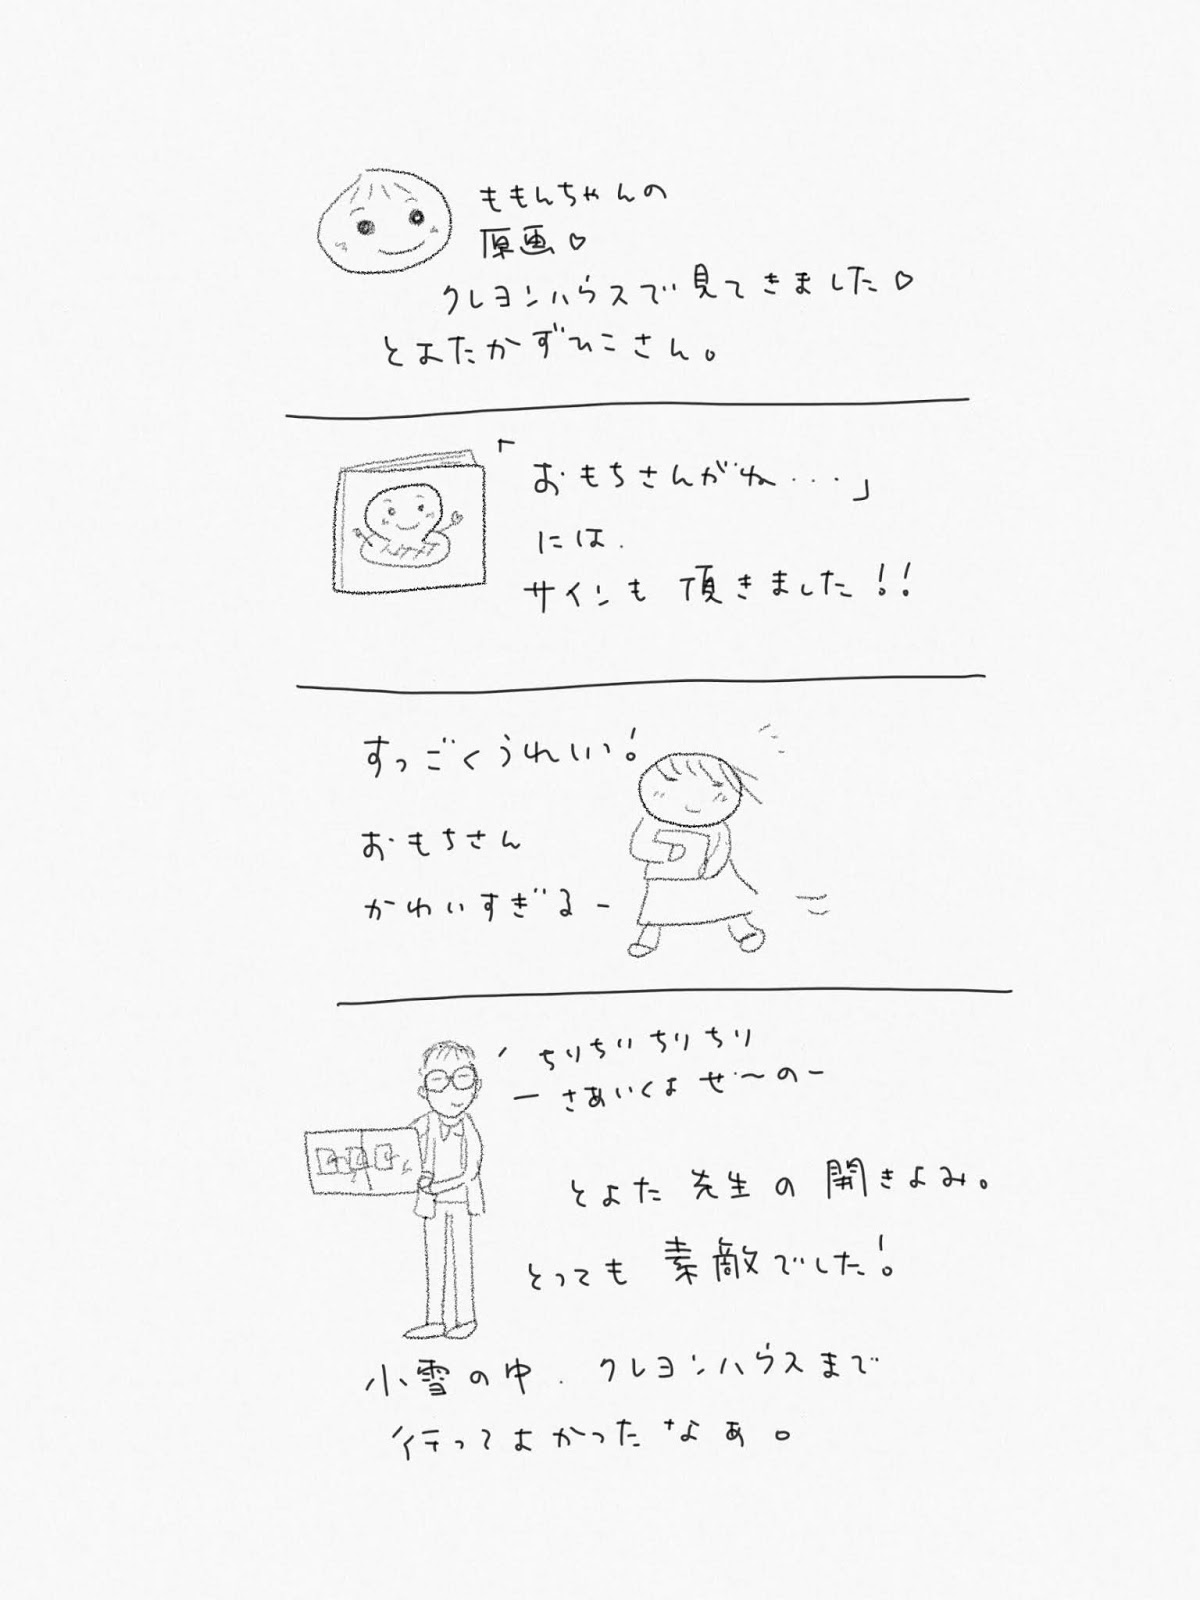 ももんちゃんの
原画♡
クレヨンハウスで見てきました♡
とよたかずひこさん。
「おもちさんがね・・・」
には、
サインも頂きました!!
すっごくうれしい!
おもちさん
かわいすぎるー
ちりちりちりちり
ーさあいくよ ぜ〜のー
とよた先生の開きよみ。
とっても素敵でした!
小雪の中、クレヨンハウスまで
行ってよかったなぁ。